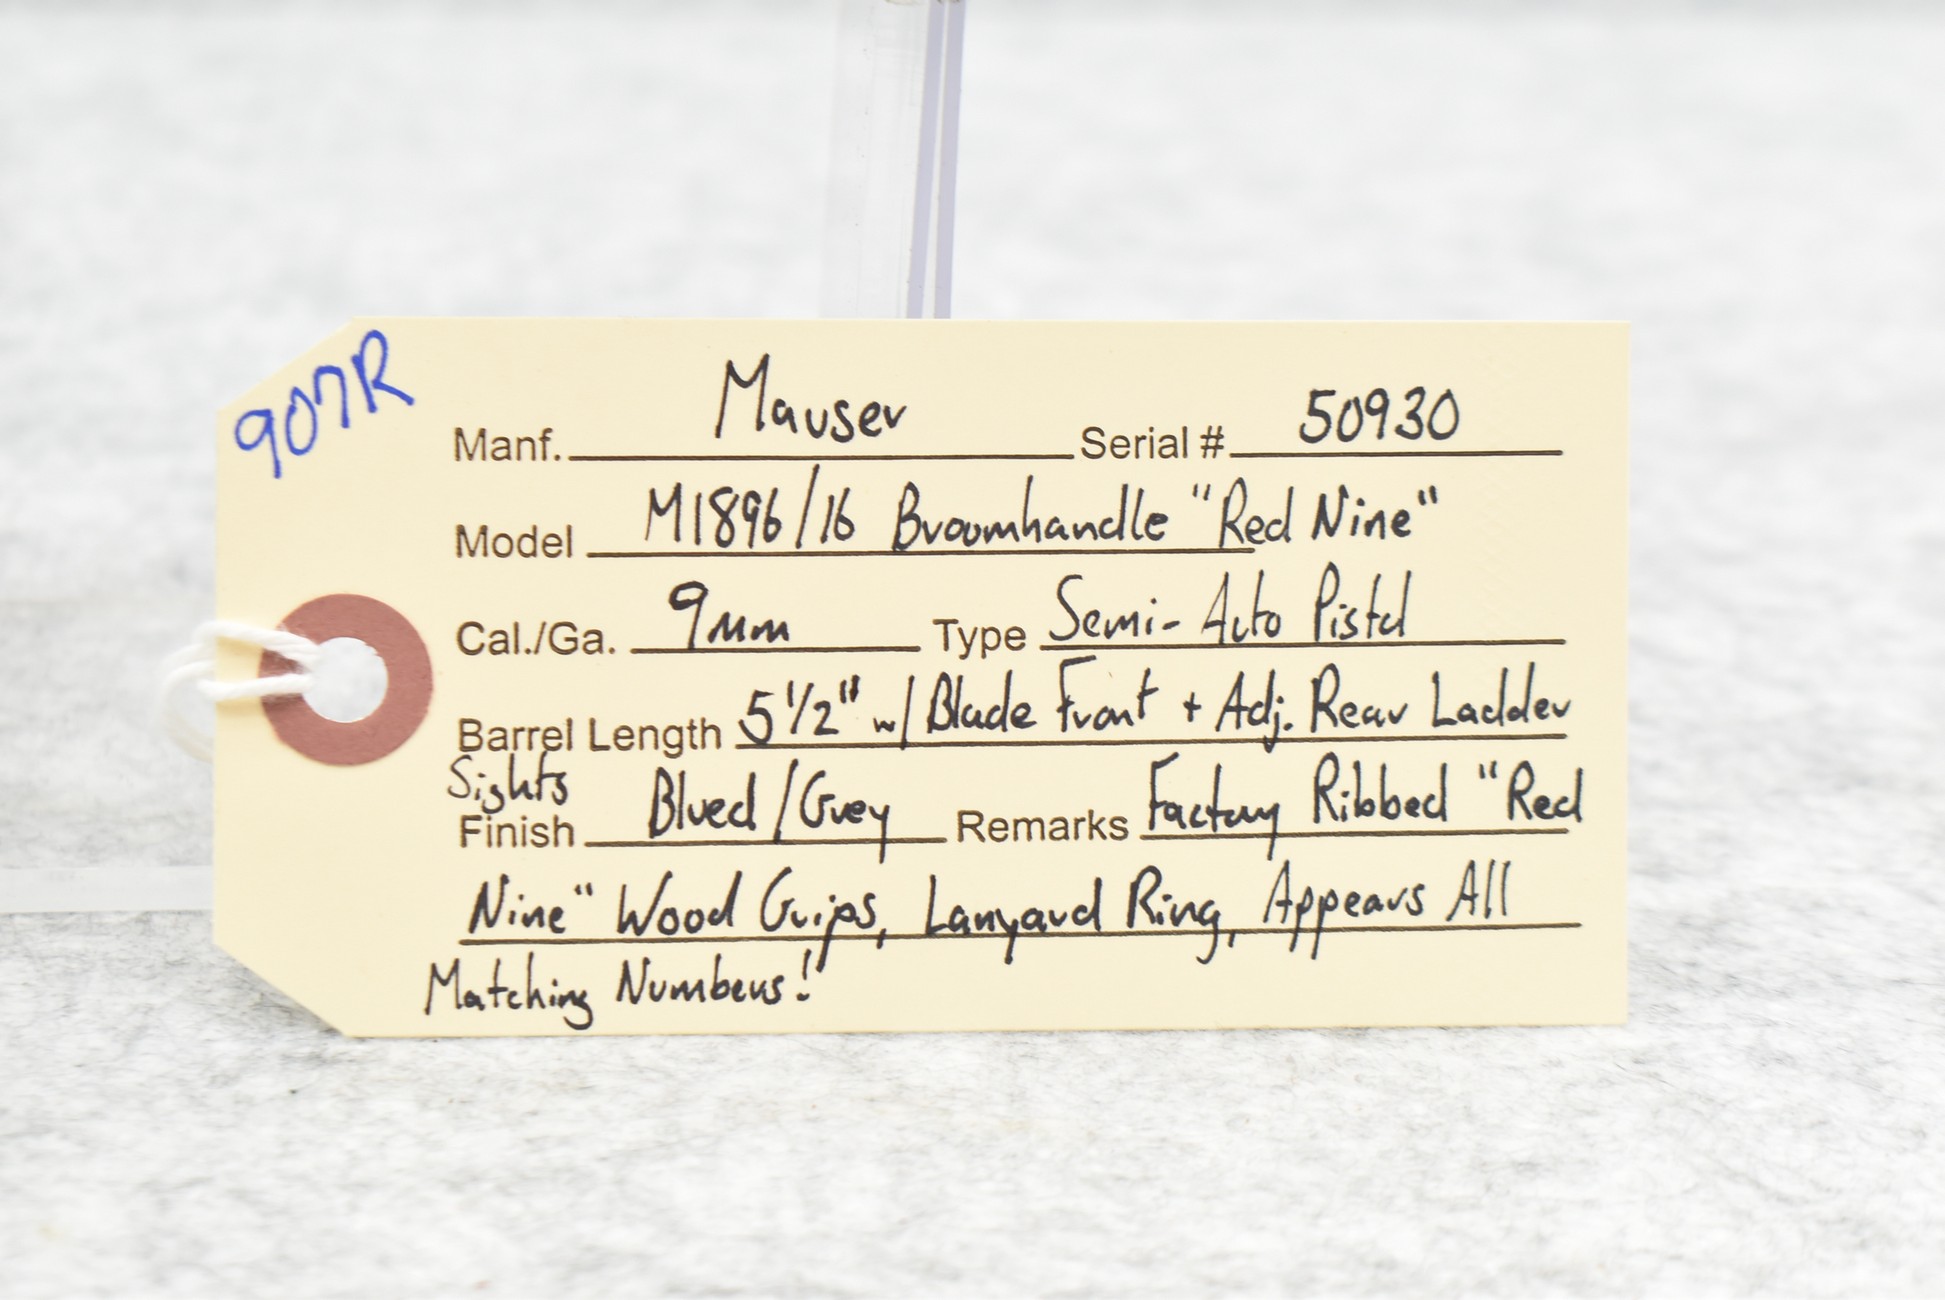 907R
Manf. Mauser Serial # 50930
Model M1896/16 Broomhandle "Red Nine"
Cal./Ga. 9mm Type Semi-Auto Pistol
Barrel Length 5 1/2" w/ Blade Front + Adj. Rear Ladder
Sights
Finish Blued/Grey Remarks Factory Ribbed "Red
Nine" Wood Grips, Lanyard Ring, Appears All
Matching Numbers!